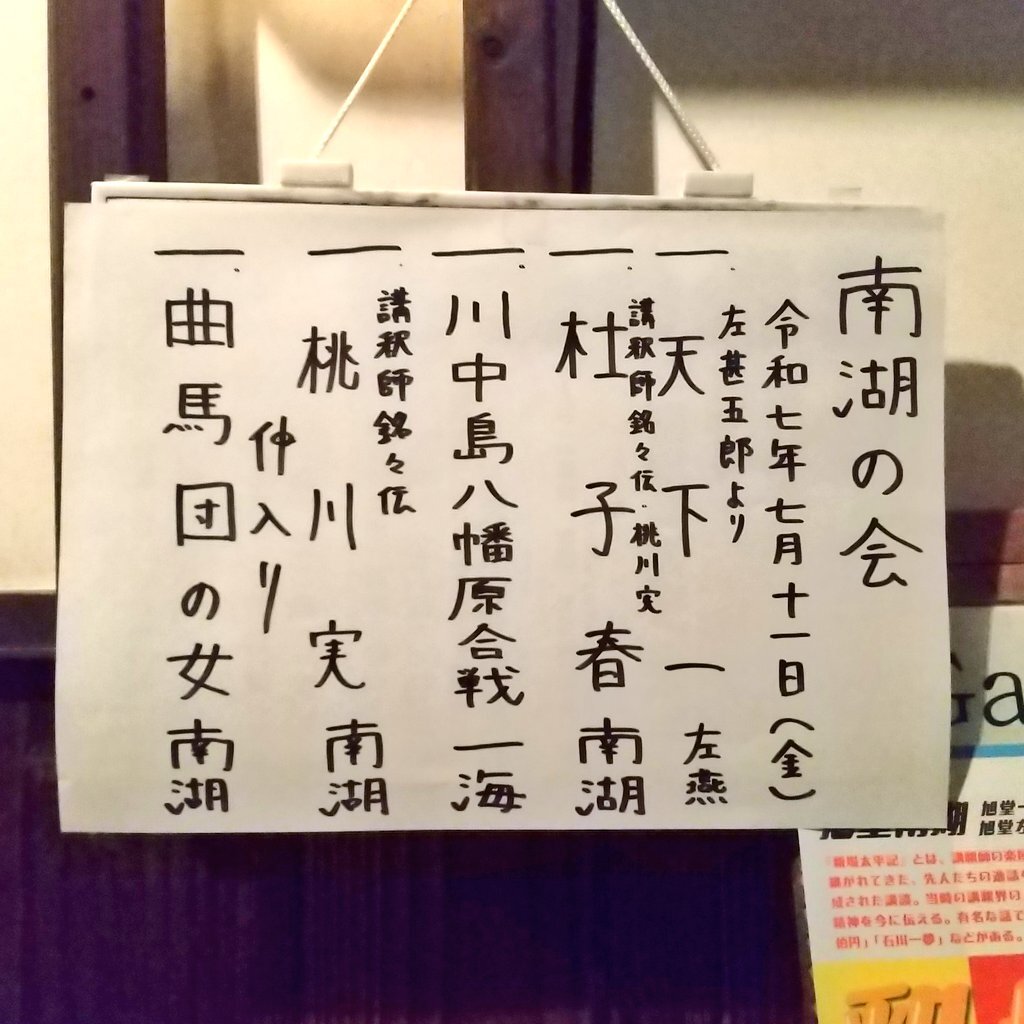 南湖の会
令和七年七月十一日(金)
左甚五郎より
一.天下一 左燕
講釈師銘々伝・桃川実
一.杜子春 南湖
一.川中島八幡原合戦 一海
講釈師銘々伝
一.桃川実 南湖
仲入り
一.曲馬団の女 南湖
Ga
旭堂南湖
旭堂一
旭堂左
とは、講釈師の
継がれてきた、先人たちの逸話
成された講談。当時の講釈界の
精神を今に伝える。有名な話で
億円」「石川一夢」などがある。